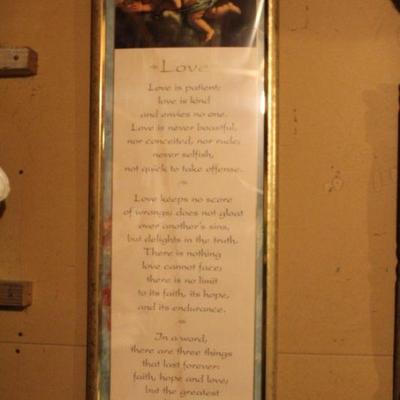 Love
Love is patient;
love is kind
and envies no one.
Love is never boastful,
nor conceited, nor rude;
never selfish,
not quick to take offense.
Love keeps no score
of wrongs; does not gloat
over another's sins,
but delights in the truth.
There is nothing
love cannot face;
there is no limit
to its faith, its hope,
and its endurance.
In a word,
there are three things
that last forever:
faith, hope and love;
but the greatest